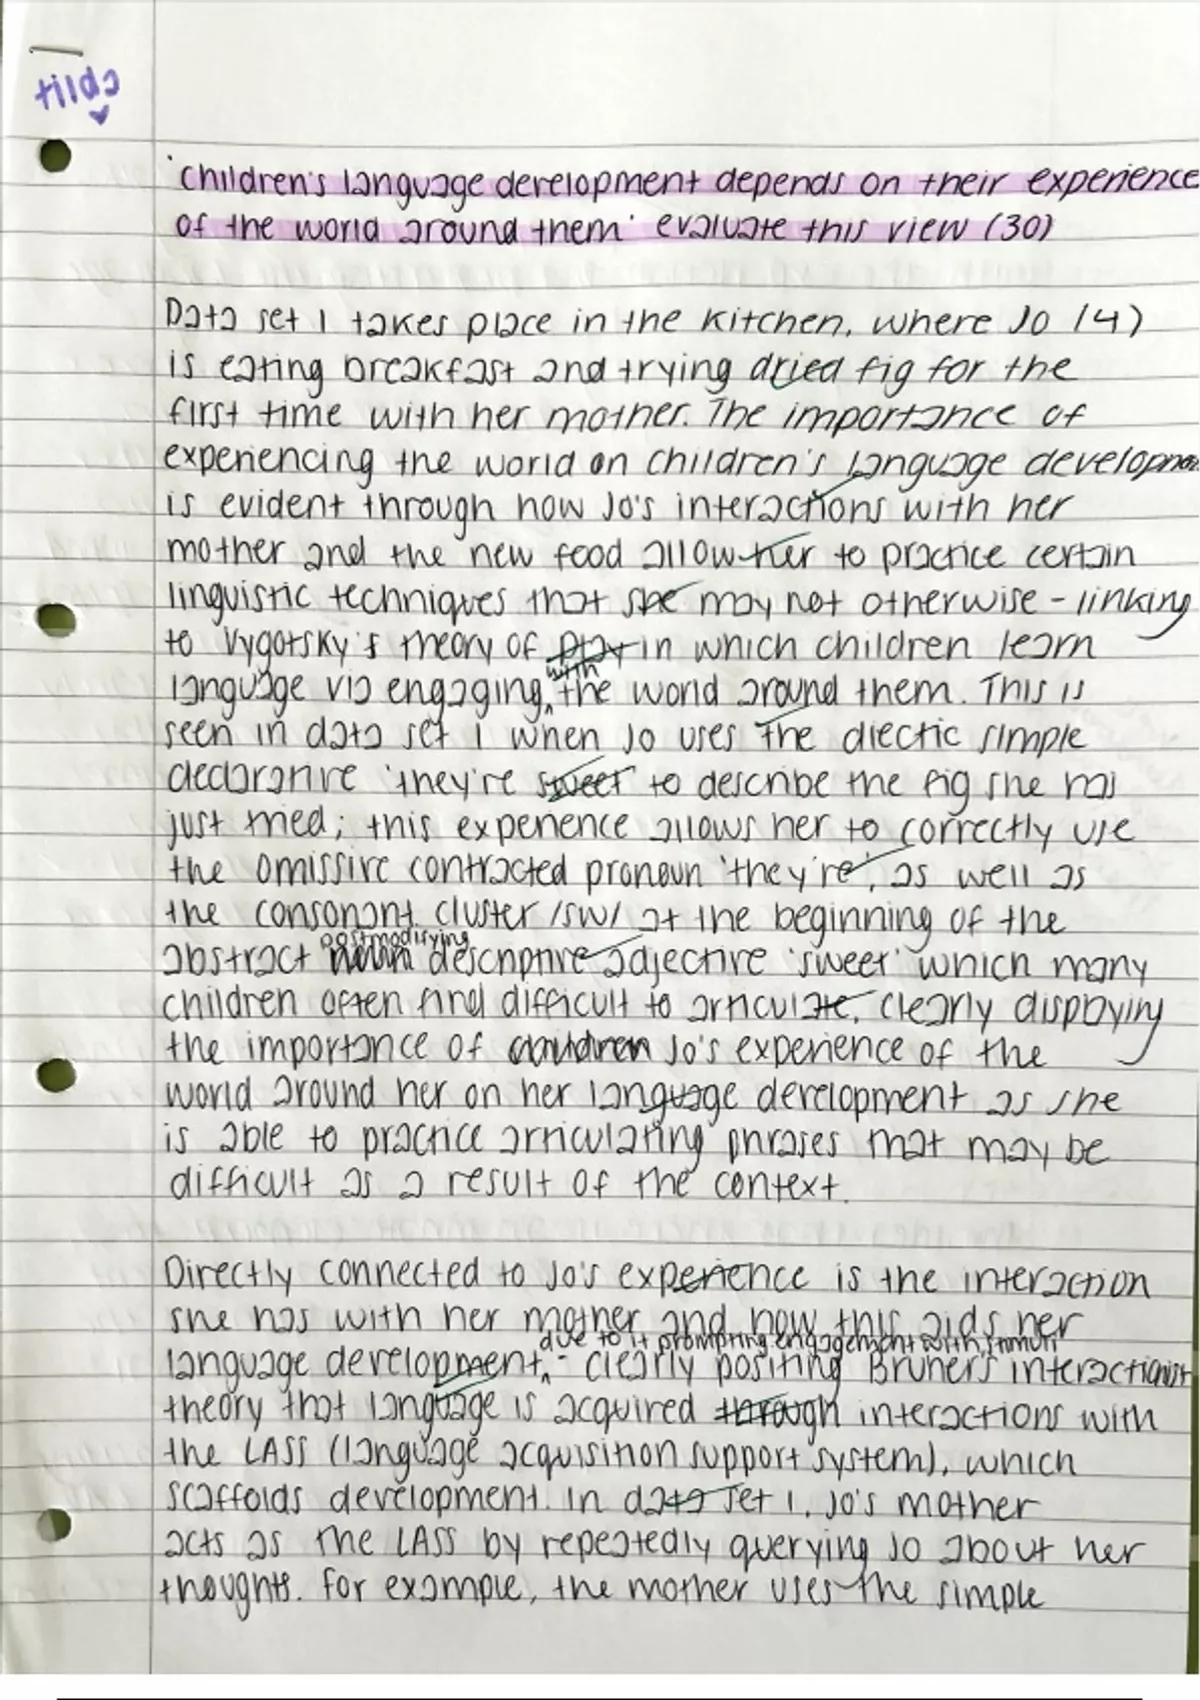 tilda
'children's language development depends on their experience
of the world around them' evaluate this view (30)
Data set 1 takes place in the kitchen, where Jo (4)
is eating breakfast and trying dried fig for the
first time with her mother. The importance of
experiencing the world on children's language developmen
is evident through how Jo's interactions with her
mother and the new food allow her to practice certain
linguistic techniques that she may not otherwise - linking
to Vygotsky's theory of play in which children learn
language via engaging with the world around them. This is
seen in data set 1 when Jo uses the diectic simple
declarative 'they're sweet' to describe the fig she has
just tried; this experience allows her to correctly use
the omissive contracted pronoun 'they're', as well as
the consonant cluster /sw/ at the beginning of the
abstract postmodifying descriptive adjective 'sweet' which many
children often find difficult to articulate, clearly displaying
the importance of Jo's experience of the
world around her on her language development as she
is able to practice articulating phrases that may be
difficult as a result of the context.
Directly connected to Jo's experience is the interaction
she has with her mother and how this aids her
due to it prompting engagement with stimuli
language development, - clearly positing Bruner's interactionist
theory that language is acquired through interactions with
the LASS (language acquisition support system), which
scaffolds development. In data set 1, Jo's mother
acts as the LASS by repeatedly querying Jo about her
thoughts. For example, the mother uses the simple